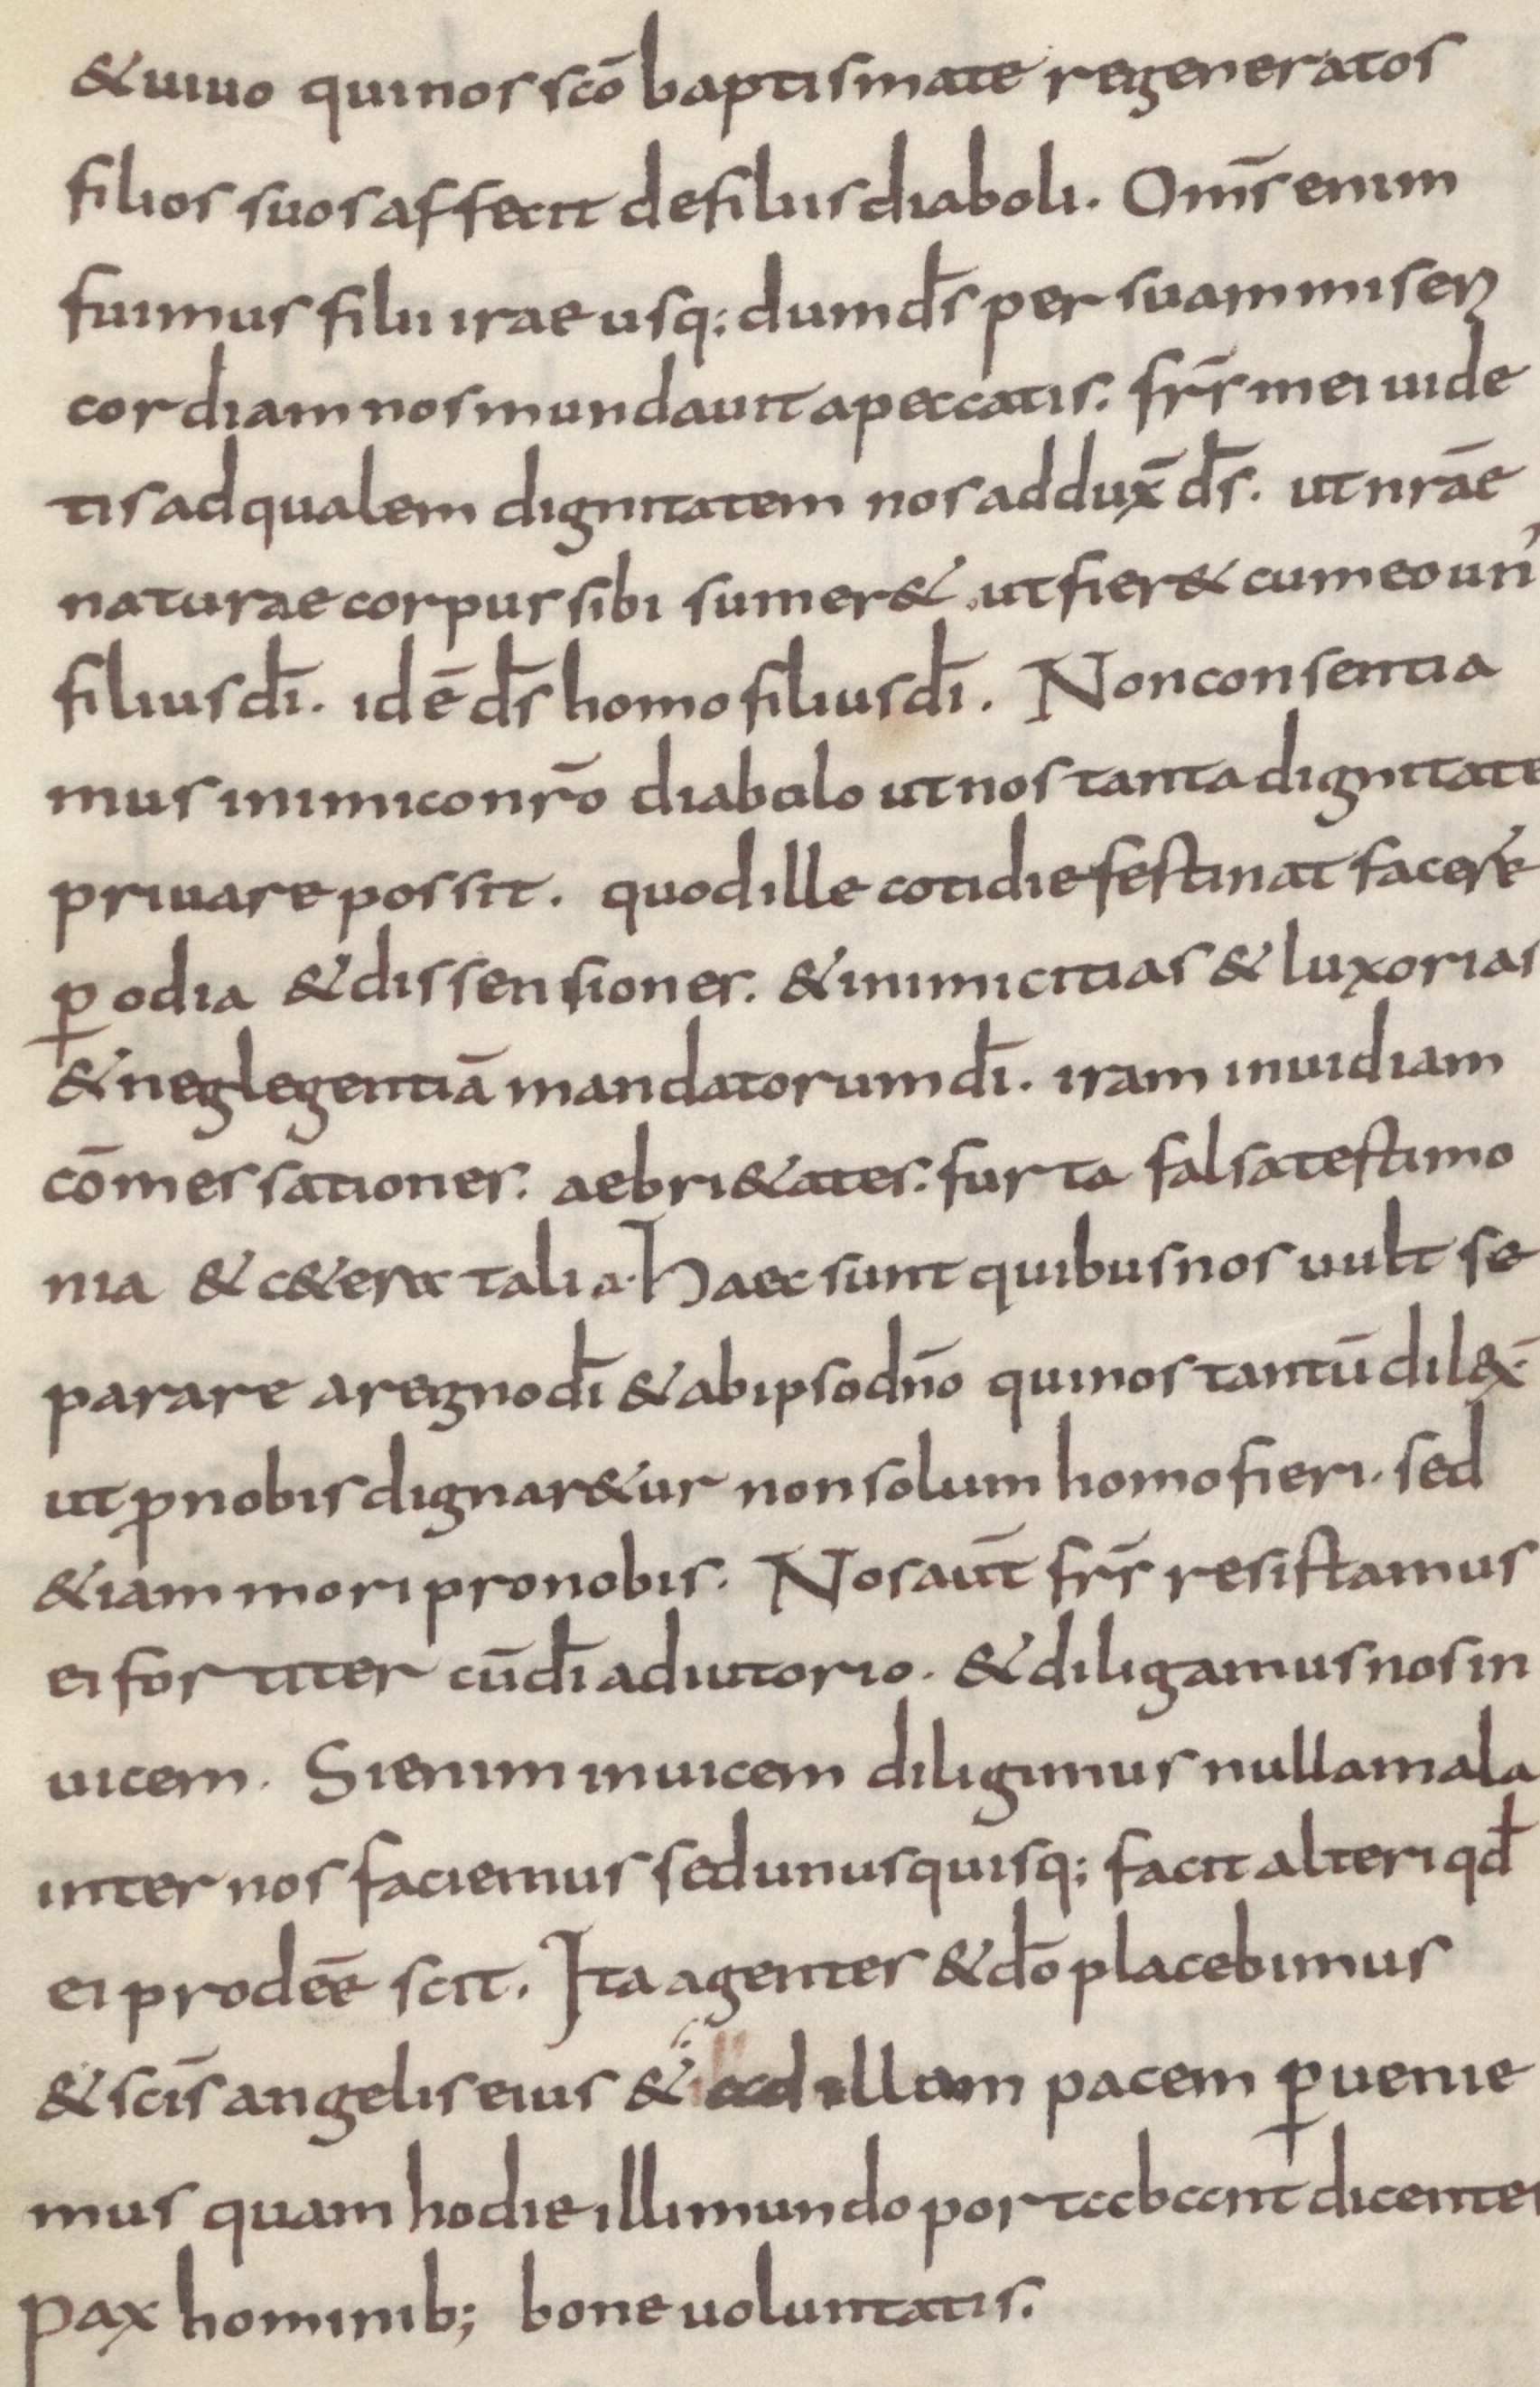 & uiuo qui nos sc̄o baptismate regeneratos
filios suos affecit de filiis diaboli. Om̄s enim
fuimus filii irae usq; dum d̄s per suam miseri
cordiam nos mundauit a peccatis. fr̄s mei uide
tis ad qualem dignitatem nos addux̄ d̄s. ut nrāe
naturae corpus sibi sumer& ut fier& cum eo un'
filius d̄i. idē d̄s homo filius d̄i. Non consentia
mus inimico nr̄o diabolo ut nos tanta dignitate
priuare possit. quod ille cotidie festinat facere
ꝑ odia & dissensiones. & inimicitias & luxorias
& neglegentiā mandatorum d̄i. iram inuidiam
cōmessationes. aebri&ates. furta falsa testimo
nia & c&era talia. Haec sunt quibus nos uult se
parare a regno d̄i & ab ipso dn̄o qui nos tantū dilex̄
ut ꝓ nobis dignar&ur non solum homo fieri. sed
&iam mori pro nobis. Nos aūt fr̄s resistamus
ei fortiter cū d̄i adiutorio. & diligamus nos in
uicem. Si enim inuicem diligimus nulla mala
inter nos faciemus sed unusquisq; facit alteri qđ
ei prodeē scit. Ita agentes & d̄o placebimus
& sc̄is angelis eius & ad illam pacem ꝑuenie
mus quam hodie illi mundo portabant dicentes
Pax hominib; bone uoluntatis.